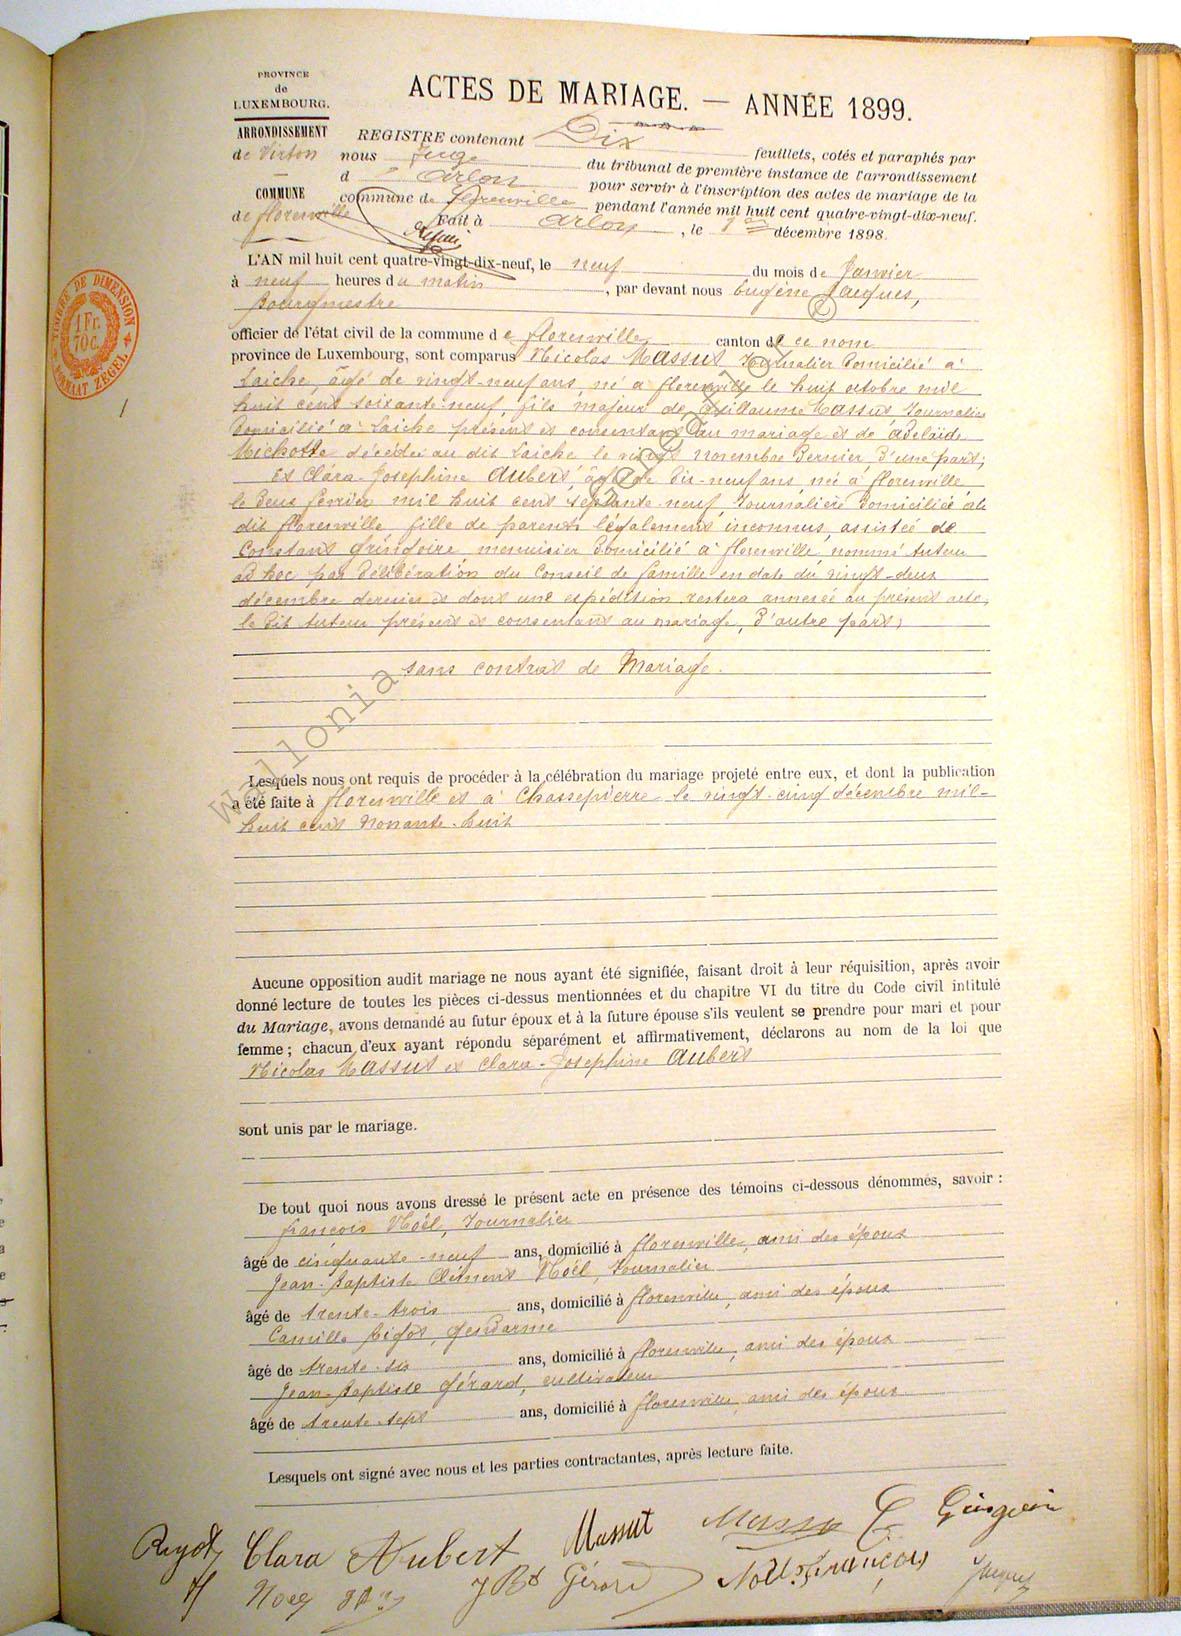 PROVINCE
de
LUXEMBOURG.
ARRONDISSEMENT
de Virton
COMMUNE
de florenville
ACTES DE MARIAGE. — ANNÉE 1899.
REGISTRE contenant Dix feuillets, cotés et paraphés par
nous Juge du tribunal de première instance de l'arrondissement
d' Arlon pour servir à l'inscription des actes de mariage de la
commune de florenville pendant l'année mil huit cent quatre-vingt-dix-neuf.
Fait à Arlon, le décembre 1898.
TIMBRE DE DIMENSION
1 Fr.
70 c.
FORMAAT ZEGEL
1
L'AN mil huit cent quatre-vingt-dix-neuf, le neuf du mois de Janvier
à neuf heures du matin, par devant nous Eugène Jacques,
Bourgmestre
officier de l'état civil de la commune de florenville canton de ce nom
province de Luxembourg, sont comparus Nicolas Massut Journalier Domicilié à
Laiche, âgé de vingt-neuf ans, né à florenville le huit octobre mil
huit cent soixante-neuf, fils majeur de Guillaume Massut Journalier
Domicilié à Laiche présent et consentant au mariage et de adelaïde
Michotte décédée au dit Laiche le vingt novembre Dernier, D'une part;
Et Clara-Josephine Aubert, âgée de Dix-neuf ans, née à florenville
le Deux février mil huit cent septante-neuf, Journalière Domiciliée au
dit florenville, fille de parents légalement inconnus, assistée de
Constant Gringoire menuisier Domicilié à florenville, nommé tuteur
ad hoc par Délibération du Conseil de famille en date du vingt-deux
décembre dernier et dont une expédition restera annexée au présent acte,
le Dit tuteur présent et consentant au mariage, D'autre part;
sans contrat de Mariage.
Lesquels nous ont requis de procéder à la célébration du mariage projeté entre eux, et dont la publication
a été faite à florenville et à Chassepierre le vingt-cinq décembre mil-
huit cent Nonante-huit
Aucune opposition audit mariage ne nous ayant été signifiée, faisant droit à leur réquisition, après avoir
donné lecture de toutes les pièces ci-dessus mentionnées et du chapitre VI du titre du Code civil intitulé
du Mariage, avons demandé au futur époux et à la future épouse s'ils veulent se prendre pour mari et pour
femme ; chacun d'eux ayant répondu séparément et affirmativement, déclarons au nom de la loi que
Nicolas Massut et Clara-Josephine Aubert
sont unis par le mariage.
De tout quoi nous avons dressé le présent acte en présence des témoins ci-dessous dénommés, savoir :
françois Noël, Journalier
âgé de cinquante-neuf ans, domicilié à florenville, ami des époux
Jean-Baptiste Clément Noël, Journalier
âgé de trente-trois ans, domicilié à florenville, ami des époux
Camille gendarme
âgé de trente-six ans, domicilié à florenville, ami des époux
Jean-Baptiste Gérard, cultivateur
âgé de trente-sept ans, domicilié à florenville ami des époux
Lesquels ont signé avec nous et les parties contractantes, après lecture faite.
Clara Aubert Massut
J Bt Gérard Noël françois Jacques
wallonia